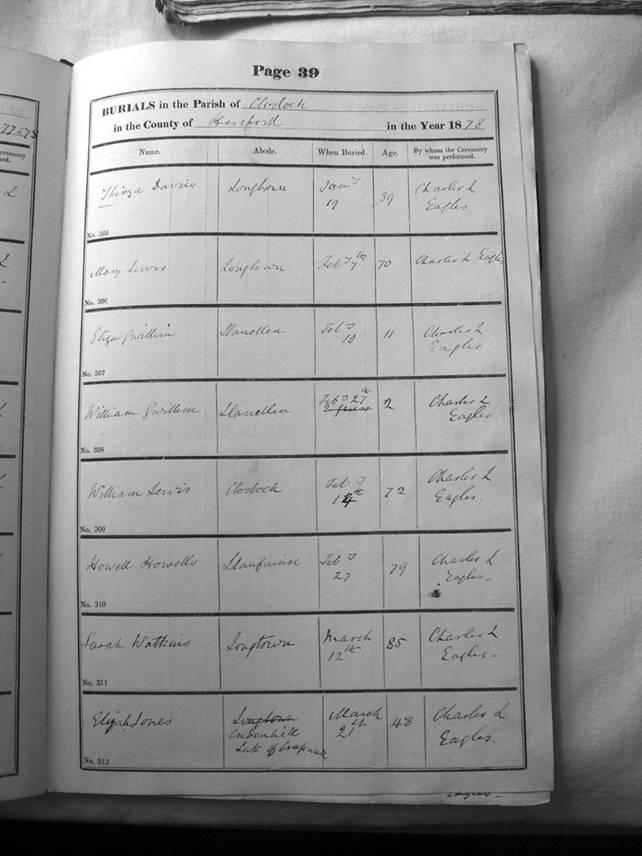 Page 39
BURIALS in the Parish of Clodock
in the County of Hereford in the Year 1878
Name. Abode. When Buried. Age. By whom the Ceremony was performed.
Thirza Davies Longtown Jany 19 39 Charles L Eagles
No. 305
Mary Lewis Longtown Feby 7th 70 Charles L Eagles
No. 306
Eliza Gwillim Llancillo Feby 10 11 Charles L Eagles.
No. 307
William Gwillim Llancillo Feby 27th 2 Charles L Eagles.
No. 308
William Lewis Clodock Feby 14th 72 Charles L Eagles.
No. 309
Howell Howells Feby 27 79 Charles L Eagles
No. 310
Sarah Watkins Longtown March 12th 85 Charles L Eagles
No. 311
Elijah Jones Longtown Credenhill Late of March 21st 48 Charles L Eagles.
No. 312